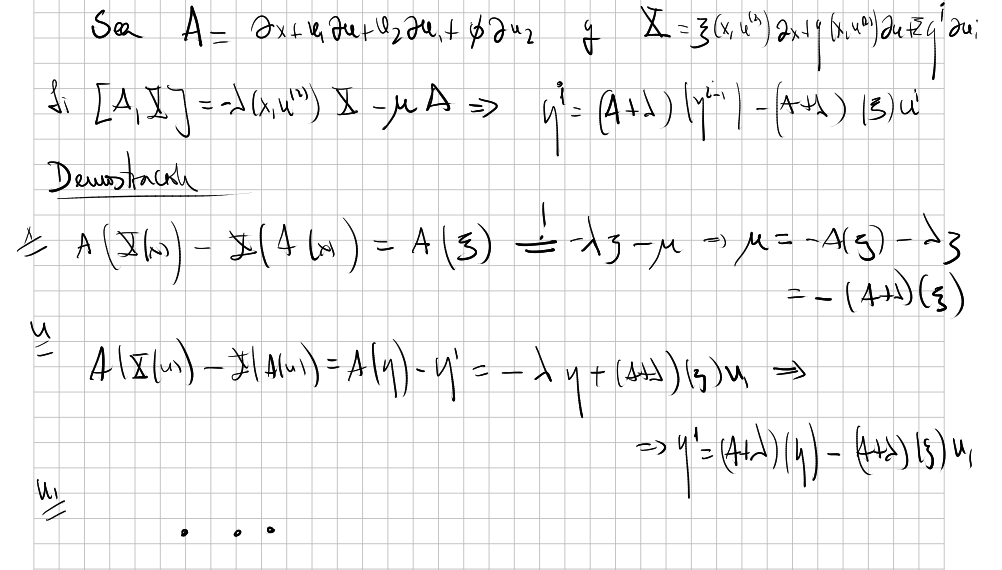 Sea A = ∂x+u₁∂u+u₂∂u₁+ϕ∂u₂ y X = ξ(x,u⁽²⁾)∂x+η(x,u⁽²⁾)∂u+Σηⁱ∂uᵢ
Si [A,X] = -λ(x,u⁽²⁾) X - μ A ⇒ ηⁱ = (A+λ)(ηⁱ⁻¹) - (A+λ)(ξ)uⁱ
Demostración
x A(X(x)) - X(A(x) = A(ξ) = -λξ - μ ⇒ μ = -A(ξ) - λξ
= - (A+λ)(ξ)
u
A(X(u)) - X(A(u)) = A(η) - η¹ = - λη + (A+λ)(ξ)u₁ ⇒
⇒ η¹ = (A+λ)(η) - (A+λ)(ξ)u₁
u₁
. . .